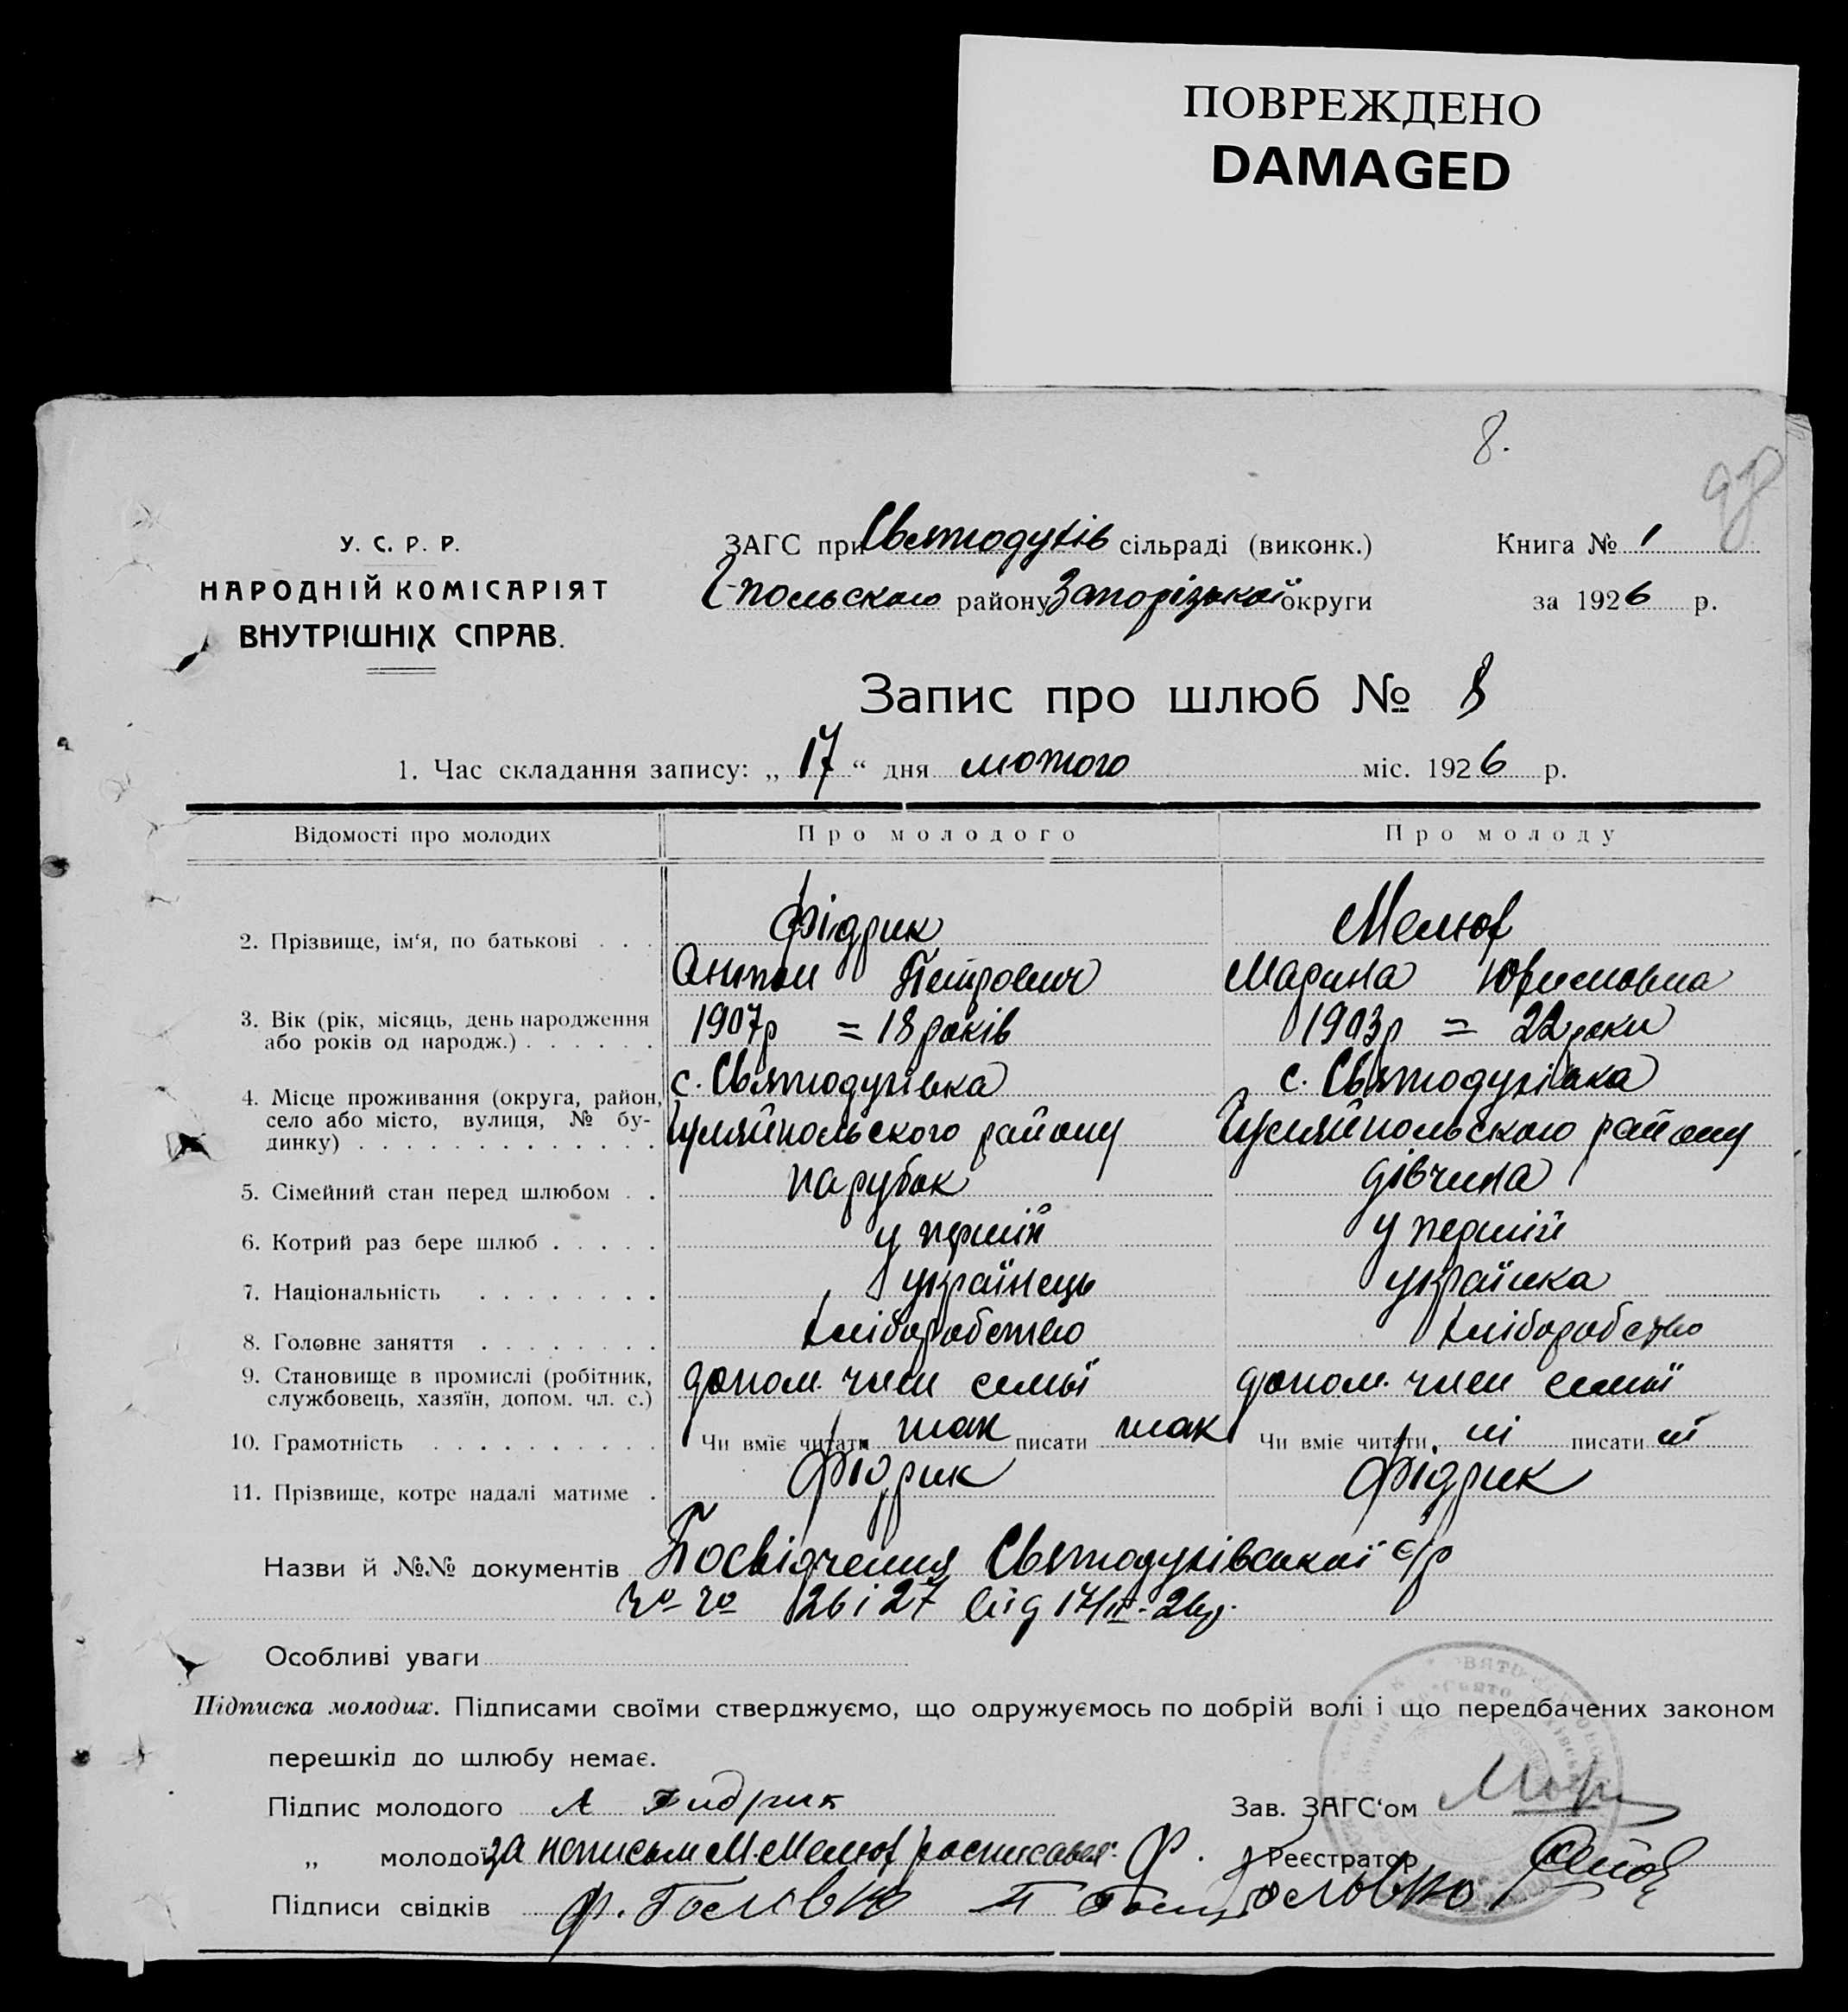 ПОВРЕЖДЕНО
DAMAGED
8.
98
У. С. Р. Р.
НАРОДНІЙ КОМІСАРІЯТ
ВНУТРІШНІХ СПРАВ.
ЗАГС при Святодухів сільраді (виконк.) Книга № 1
Г-польского району Запорізької округи за 1926 р.
Запис про шлюб № 8
1. Час складання запису: „ 17 “ дня лютого міс. 1926 р.
Відомості про молодих Про молодого Про молоду
2. Прізвище, ім‘я, по батькові . . . Фідрик Мелюх
Антон Петрович Марина
3. Вік (рік, місяць, день народження 1907р = 18 років 1903р = 22 роки
або років од народж.) . . . . . .
с. Святодухівка с. Святодухівка
4. Місце проживання (округа, район,
село або місто, вулиця, № бу- Гуляйпольского району Гуляйпольского району
динку) . . . . . . . . . . . . .
5. Сімейний стан перед шлюбом . . парубок дівчина
6. Котрий раз бере шлюб . . . . . у перший у перший
7. Національність . . . . . . . . українець українка
8. Головне заняття . . . . . . . . хліборобство хліборобство
9. Становище в промислі (робітник, допом. член семьї допом. член семьї
службовець, хазяїн, допом. чл. с.)
10. Грамотність . . . . . . . . . . Чи вміє читати так писати так Чи вміє читати. ні писати ні
11. Прізвище, котре надалі матиме . Фідрик Фідрик
Назви й №№ документів Посвідчення Святодухівської с/р
26 і 27 від 17/II-26р.
Особливі уваги
Підписка молодих. Підписами своїми стверджуємо, що одружуємось по добрій волі і що передбачених законом
перешкід до шлюбу немає.
Підпис молодого А Фидрик Зав. ЗАГС‘ом
„ молодої за неписьм М. Мелюх росписавсь: Ф. Головко Реєстратор
Підписи свідків Ф. Головко П